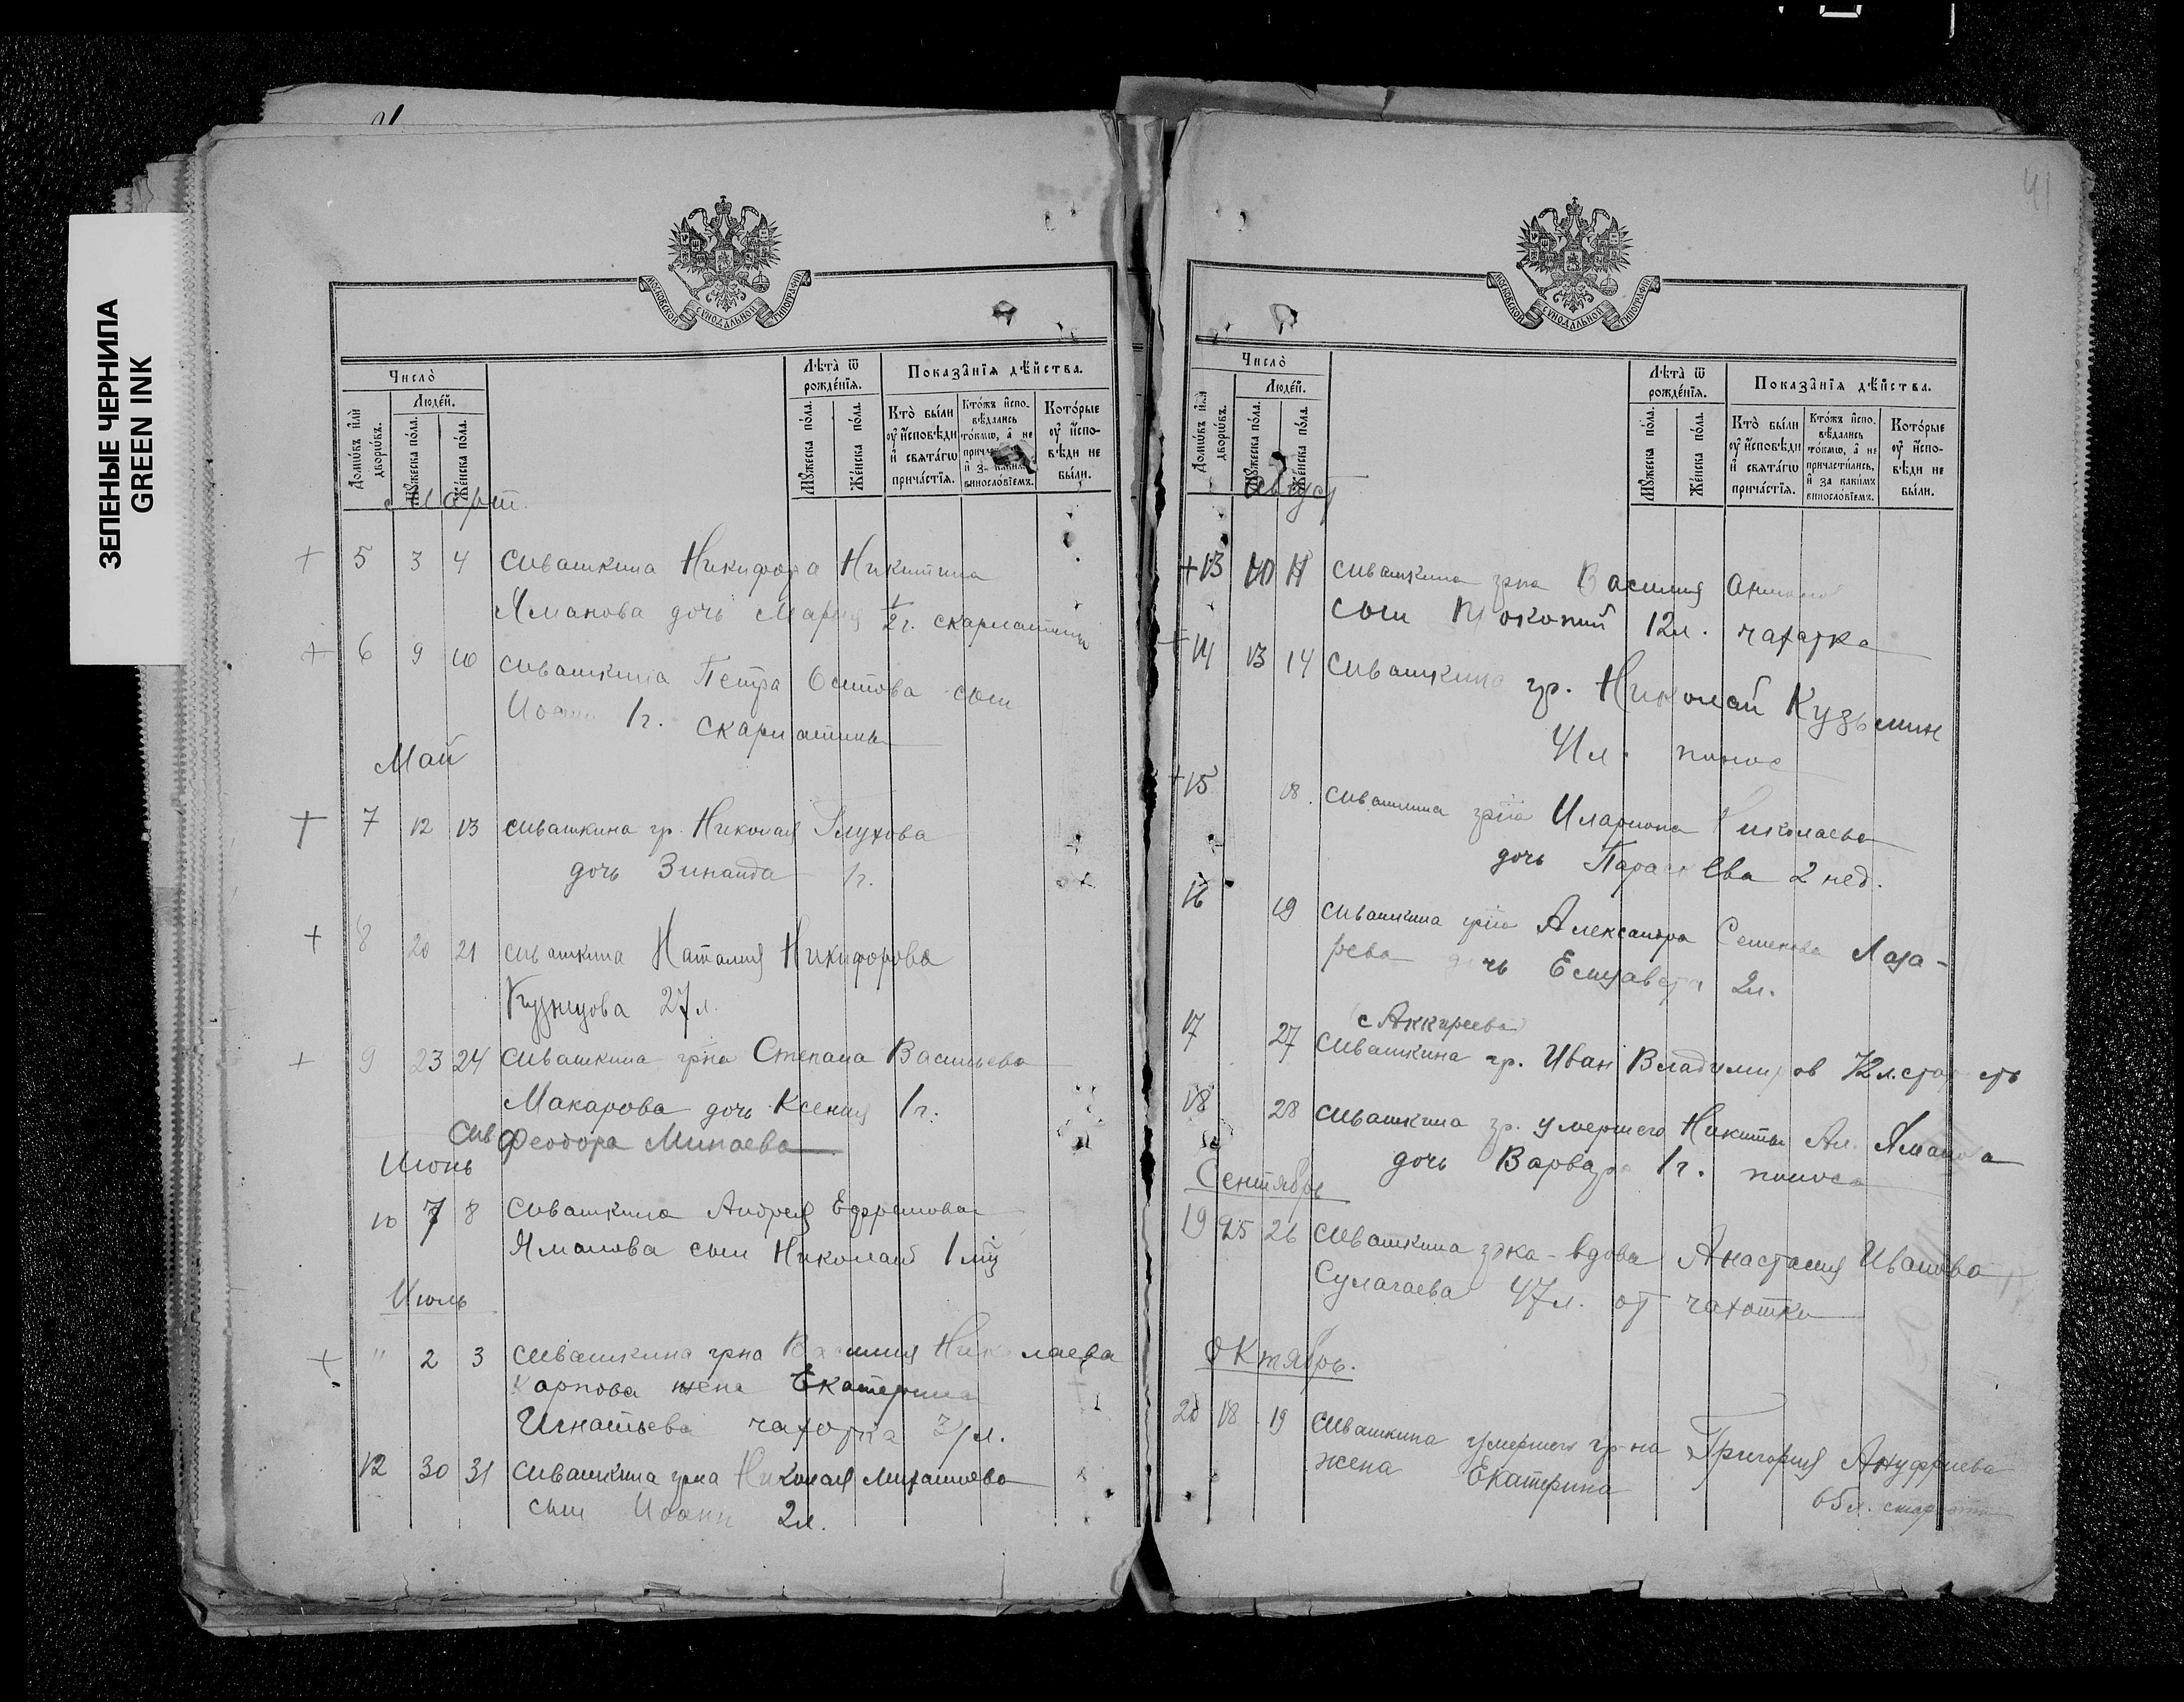 ЗЕЛЕНЫЕ ЧЕРНИЛА
GREEN INK
МОСКОВСКОЙ СѴНОДАЛЬНОЙ ТИПОГРАФІИ
Число̀
Людей.
Домѡвъ и҆лѝ дворѡвъ.
Мꙋжеска по́ла.
Же́нска по́ла.
Лѣта̀ ѿ рожде́нїѧ.
Мꙋжеска по́ла.
Же́нска по́ла.
Показа̑нїѧ дѣ́йства.
Кто̀ бы́ли ᲂу҆ и҆сповѣди и҆ свѧта́гѡ прича́стїѧ.
Кто́жъ и҆спо-вѣдались то́кмѡ, а҆ не
винослѡвїемъ.
Кото́рые ᲂу҆ и҆спо-вѣди не бы́ли.
Март
+ 5 3 4 Сивашкина Никифора Никитина
Яманова дочь Мария 1/2 г. скарлатины
+ 6 9 10 Сивашкина Петра Осипова сын
Иоанн 1 г. скарлатины
Май
+ 7 12 13 Сивашкина гр. Николая Глухова
дочь Зинаида 1 г.
+ 8 20 21 Сивашкина Наталия Никифорова
Кузнецова 27 л.
+ 9 23 24 Сивашкина гр-на Степана Васильева
Макарова дочь Ксения 1 г.
Сив Феодора Минаева
Июнь
10 7 8 Сивашкина Андрея Ефремова
Яманова сын Николай 1 мц
Июль
+ " 2 3 Сивашкина гр-на Василия Николаева
Карпова жена Екатерина
Игнатьева чахотка л.
12 30 31 Сивашкина гр-на Николая
сын Иоанн 2 л.
41
МОСКОВСКОЙ СѴНОДАЛЬНОЙ ТИПОГРАФІИ
Число̀
Людей.
Домѡвъ и҆лѝ дворѡвъ.
Мꙋжеска по́ла.
Же́нска по́ла.
Лѣта̀ ѿ рожде́нїѧ.
Мꙋжеска по́ла.
Же́нска по́ла.
Показа̑нїѧ дѣ́йства.
Кто̀ бы́ли ᲂу҆ и҆сповѣди и҆ свѧта́гѡ прича́стїѧ.
Кто́жъ и҆спо-вѣдались то́кмѡ, а҆ не причасти́лись, и҆ за каки́мъ винослѡвїемъ.
Кото́рые ᲂу҆ и҆спо-вѣди не бы́ли.
Август
+ 13 10 11 Сивашкина гр-на Василия
сын Прокопий 12 л. чахотка
+ 14 13 14 Сивашкина гр. Николай Кузьмин
41 л. понос
+ 15 18. Сивашкина гр-на Илариона Николаева
дочь Параскева 2 нед.
16 19 Сивашкина гр-на Александра Семенова Лаза-
рева дочь Елизавета 2 л.
(с Аккиреева)
17 27 Сивашкина гр. Иван Владимиров 72 л. старость
18 28 Сивашкина гр. умершего Никиты Ал. Яманова
дочь Варвара 1 г. поноса
Сентябрь
19 25 26 Сивашкина гр-ка - вдова Анастасия Иванова
Сулагаева 47 л. от чахотки
Октябрь.
20 18 19 Сивашкина умершего гр-на Григория Ануфриева
жена Екатерина
65 л. старости